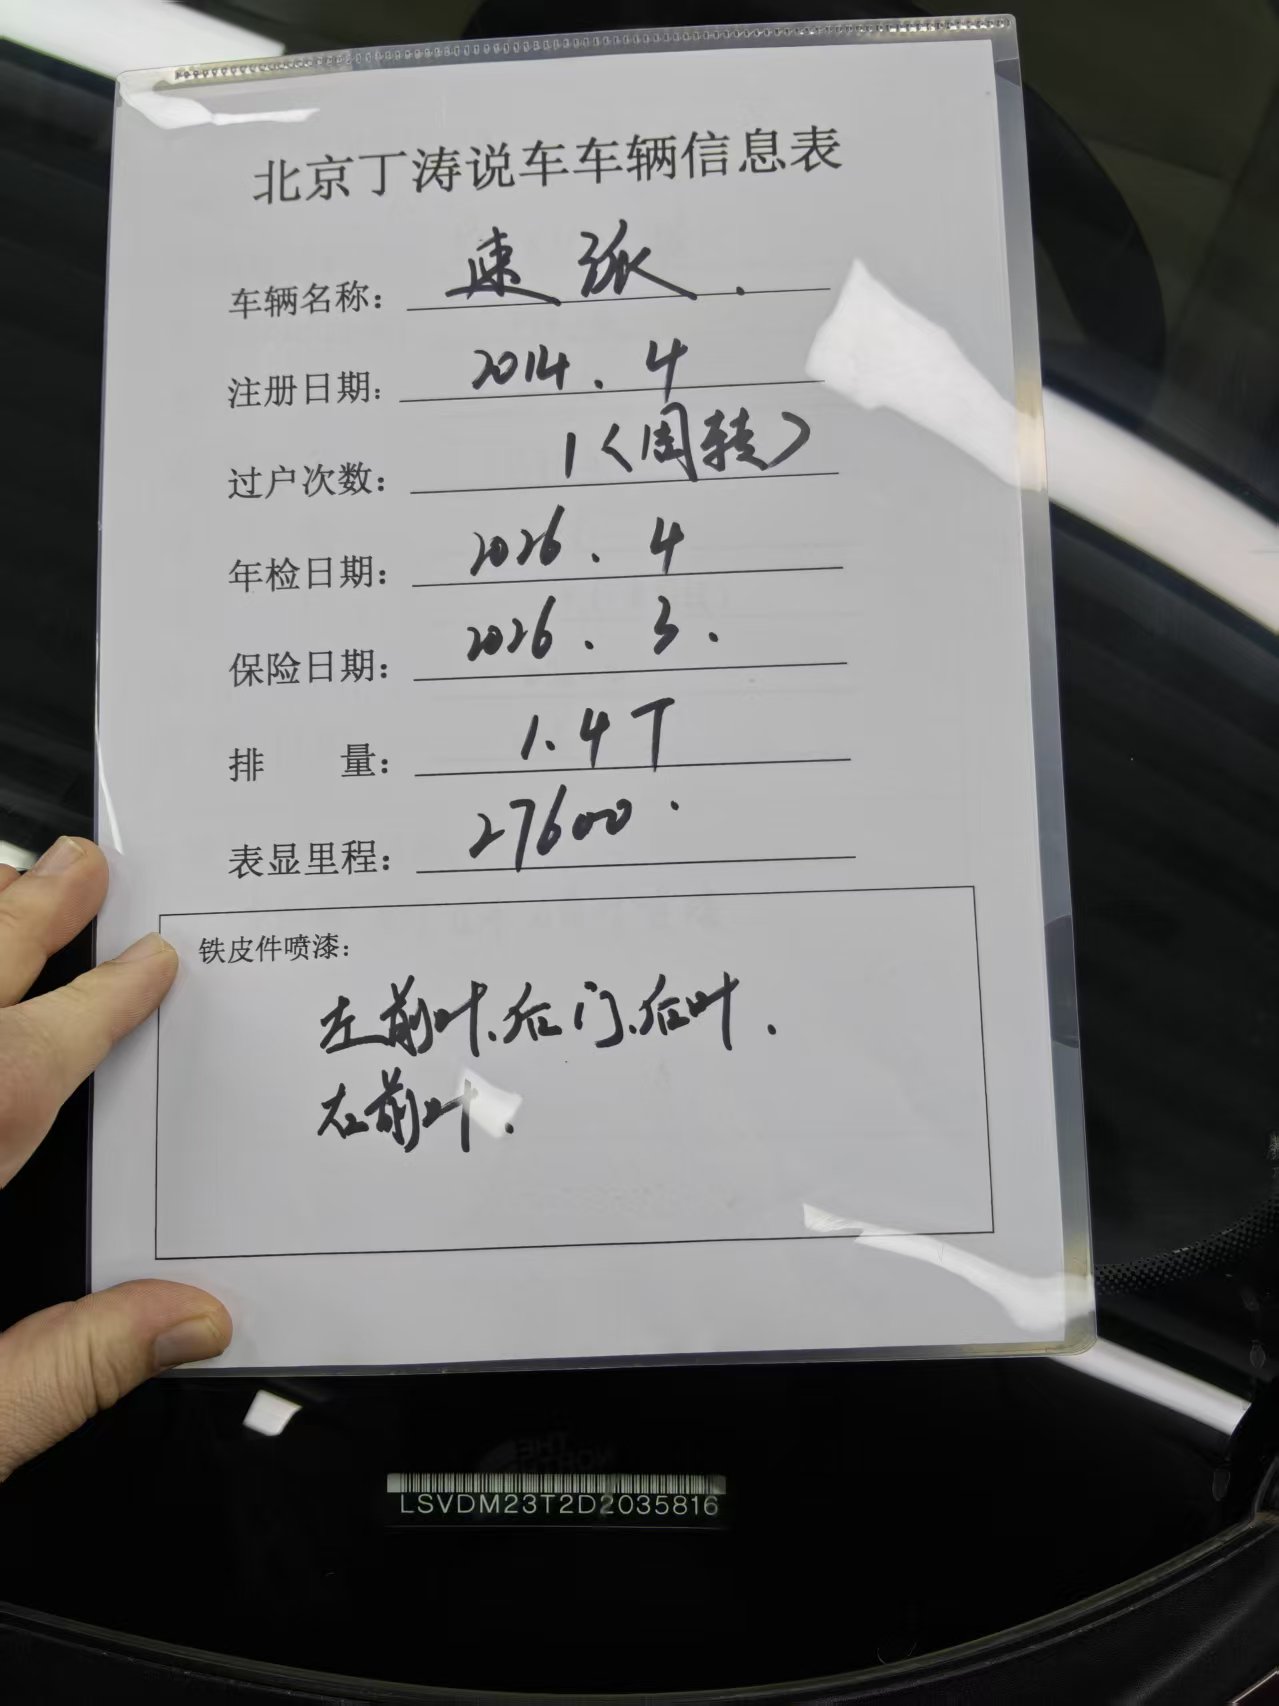 北京丁涛说车车辆信息表
车辆名称： 速派.
注册日期： 2014.4
过户次数： 1（周转）
年检日期： 2026.4
保险日期： 2026.3.
排 量： 1.4T
表显里程： 27600.
铁皮件喷漆：
左前叶、后门、后叶.
右前叶.
THE
NORTH
LSVDM23T2D2035816